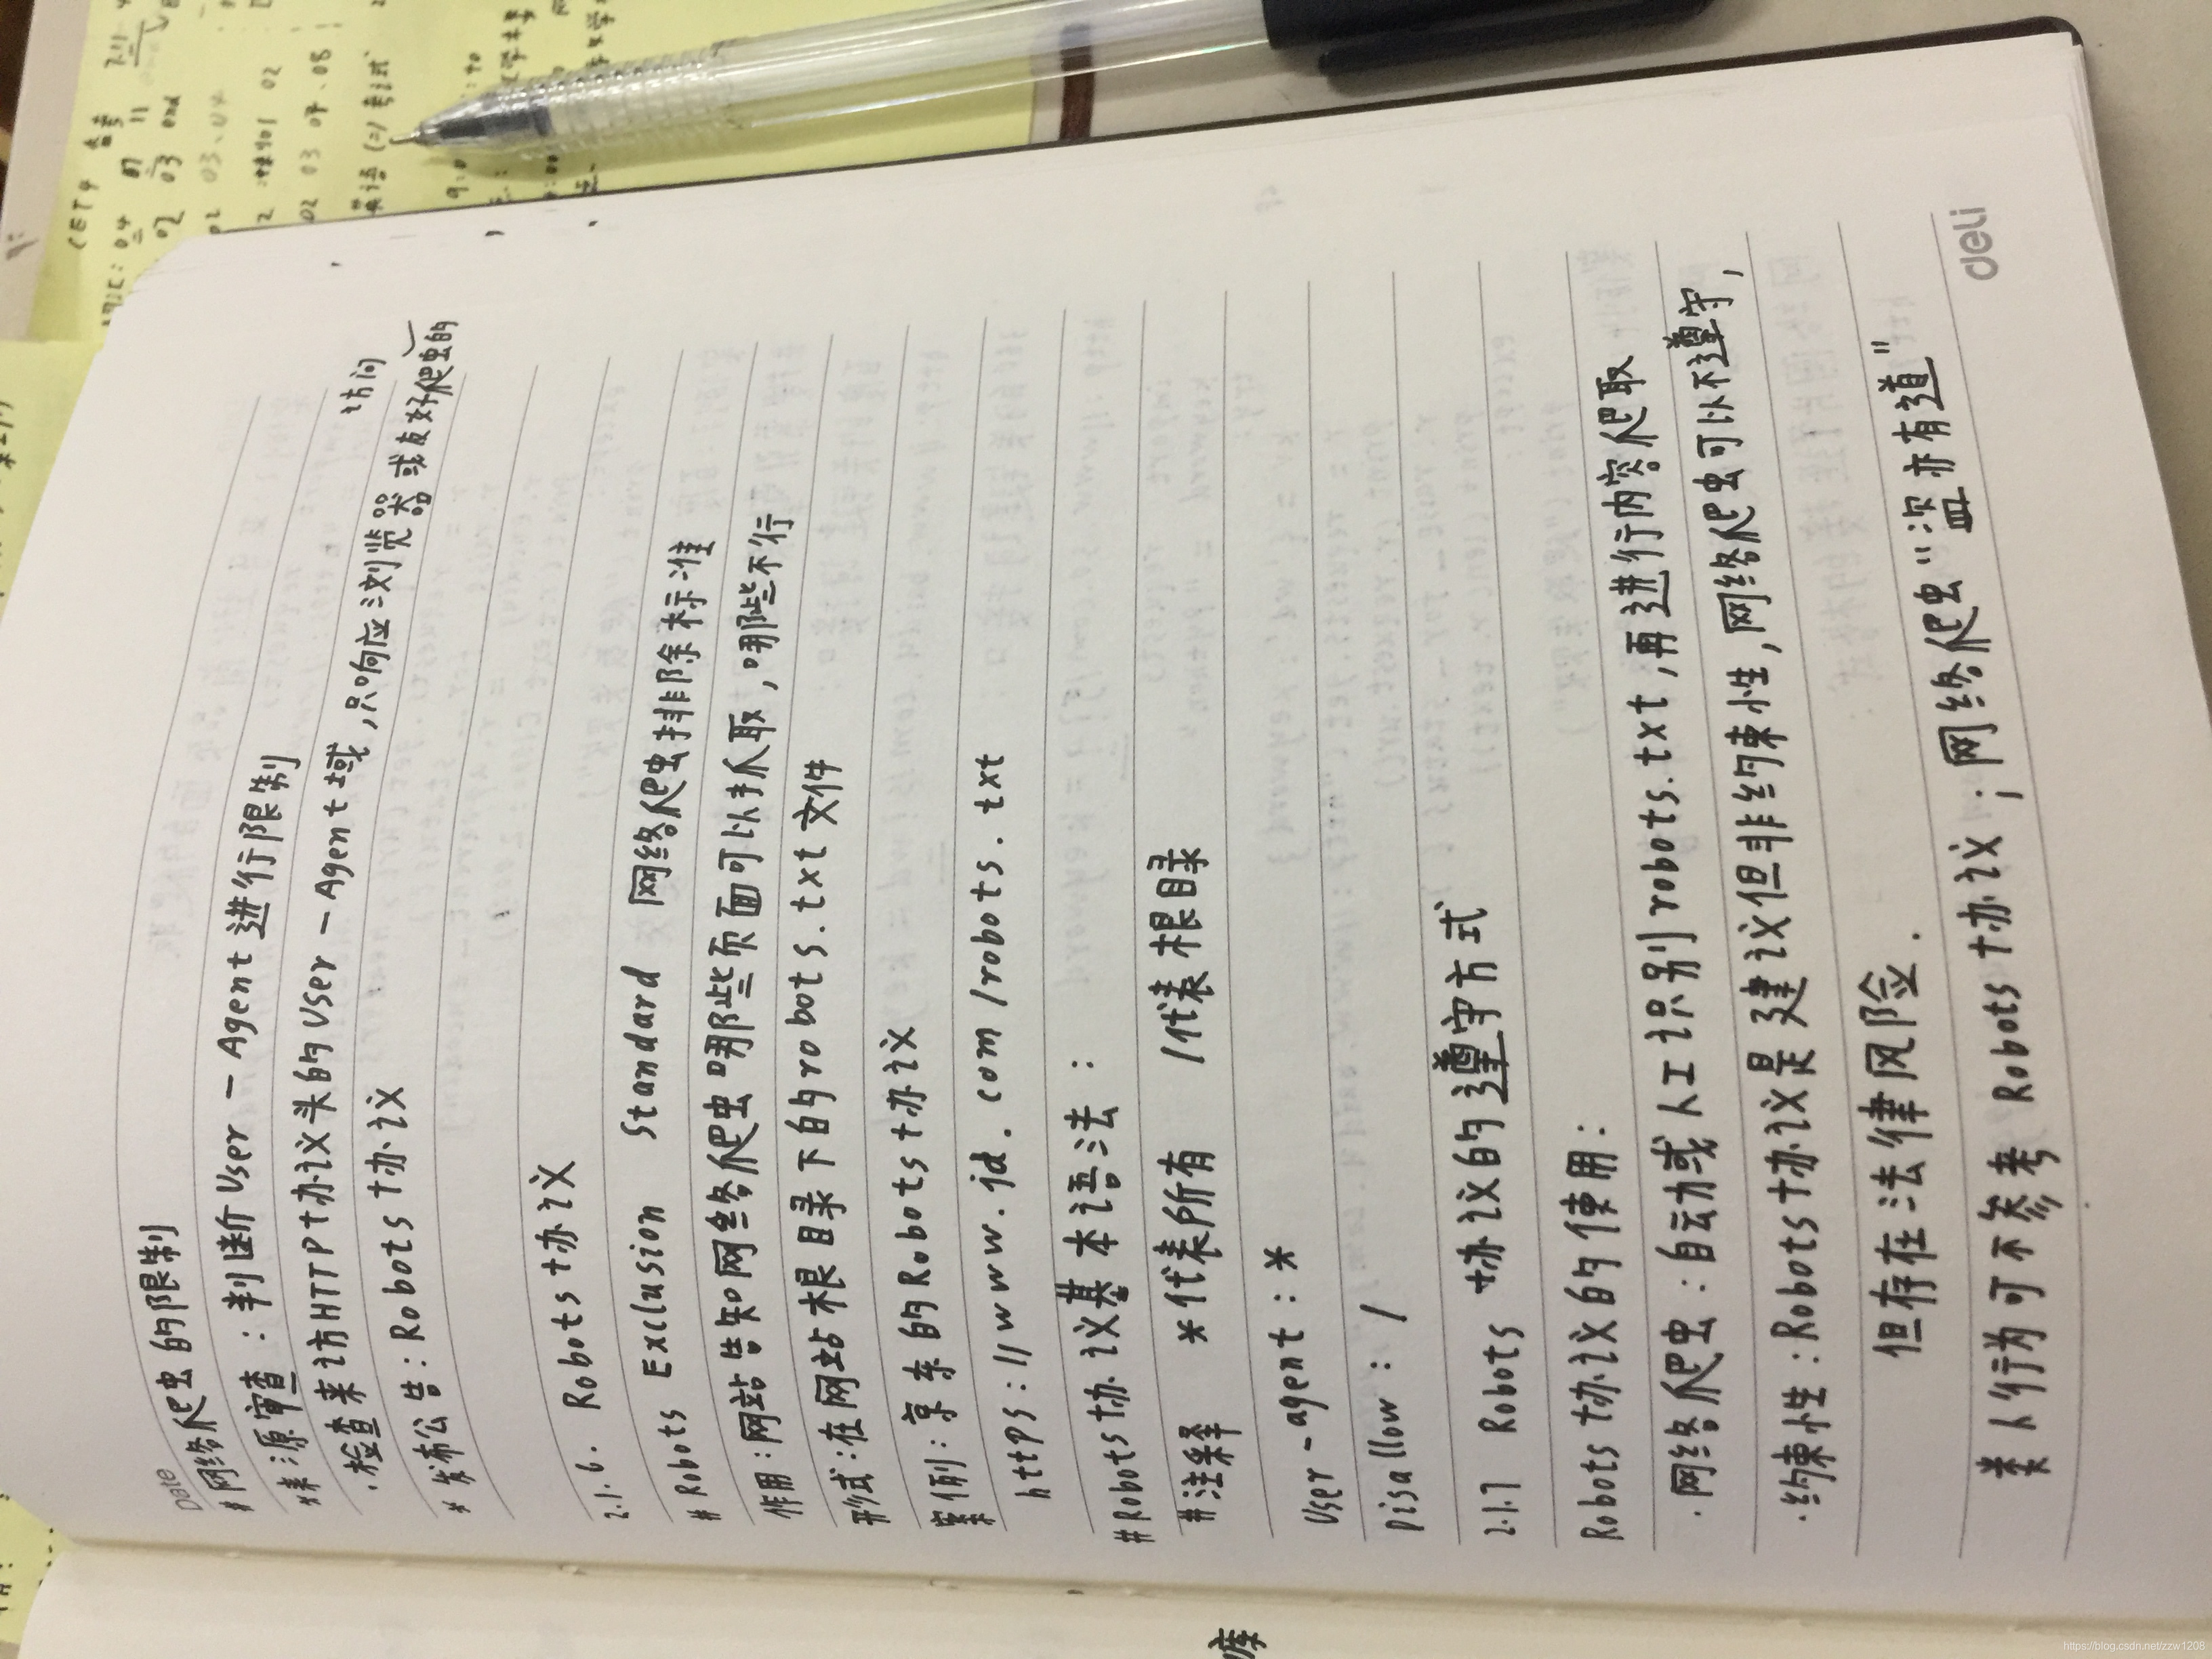 Date
#网络爬虫的限制
#来源审查：判断User-Agent进行限制
·检查来访HTTP协议头的User-Agent域，只响应浏览器或友好爬虫的访问
#发布公告：Robots协议
2.1.6. Robots协议
# Robots Exclusion Standard 网络爬虫排除标准
作用：网站告知网络爬虫哪些页面可以抓取，哪些不行
形式：在网站根目录下的robots.txt文件
案例：京东的Robots协议
https://www.jd.com/robots.txt
#Robots协议基本语法：
#注释 *代表所有 /代表根目录
User-agent:*
Disallow:/
2.1.7 Robots 协议的遵守方式
Robots协议的使用：
·网络爬虫：自动或人工识别robots.txt，再进行内容爬取
·约束性：Robots协议是建议但非约束性，网络爬虫可以不遵守，
但存在法律风险.
类人行为可不参考 Robots协议；网络爬虫"盗亦有道"
deli
CET4
英语(二)考试
https://blog.csdn.net/zzw1208